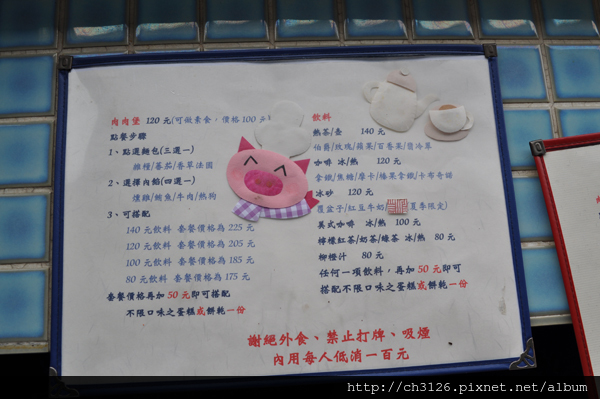 肉肉堡 120 元(可做素食，價格 100 元)
點餐步驟
1、點選麵包(三選一)
雜糧/蕃茄/香草法國
2、選擇內餡(四選一)
燻雞/鮪魚/牛肉/熱狗
3、可搭配
140 元飲料 套餐價格為 225 元
120 元飲料 套餐價格為 205 元
100 元飲料 套餐價格為 185 元
80 元飲料 套餐價格為 175 元
套餐價格再加 50 元即可搭配
不限口味之蛋糕或餅乾一份
飲料
熱茶/壺 140 元
伯爵/玫瑰/蘋果/百香果/薔冷翠
咖啡 冰/熱 120 元
拿鐵/焦糖/摩卡/榛果拿鐵/卡布奇諾
冰砂 120 元
覆盆子/紅豆牛奶 夏季限定)
美式咖啡 冰/熱 100 元
檸檬紅茶/奶茶/綠茶 冰/熱 80 元
柳橙汁 80 元
任何一項飲料，再加 50 元即可
搭配不限口味之蛋糕或餅乾一份
謝絕外食、禁止打牌、吸煙
內用每人低消一百元
http://ch3126.pixnet.net/album